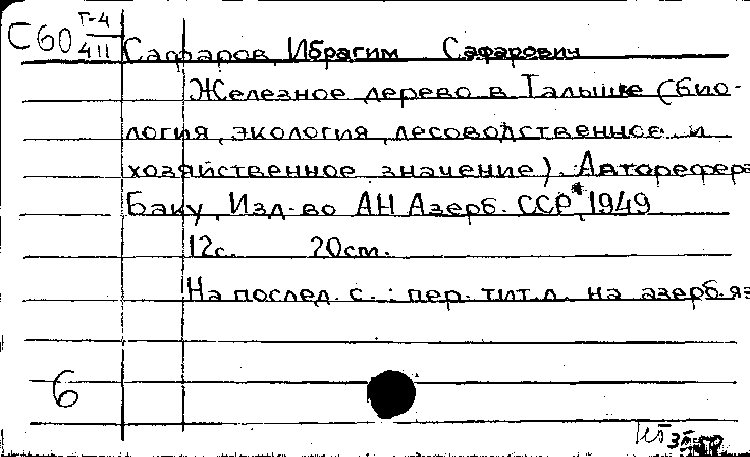 С60 Г-4
411
Сафаров, Ибрагим Сафарович
Железное дерево в Талыше (био-
логия, экология, лесоводственное и
хозяйственное значение). Авторефера
Баку, Изд-во АН Азерб. ССР, 1949
12с. 20см.
На послед. с.: пер. тит. л. на азерб. яз
6